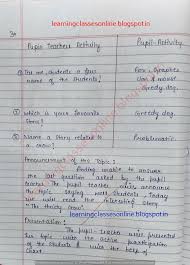 learningclassesonline.blogspot.in
Pupil Teacher Activity
Pupil Activity
Tell me, students a few
name of the students!
Fox & Grapes
Greedy dog.
which is your favourite
story?
Greedy dog!
Name a story related to
a crow?
Problematic.
Announcement of the Topic:
Finding unable to answer
the last question asked by the pupil
teacher. The pupil teacher will announce
the topic saying well students Today
we will read the interesting story
"The thirsty crow"
learningclassesonline.blogspot.in
Presentation:
The pupil-teacher will present
his topic with the active participation
of the students & with the help of